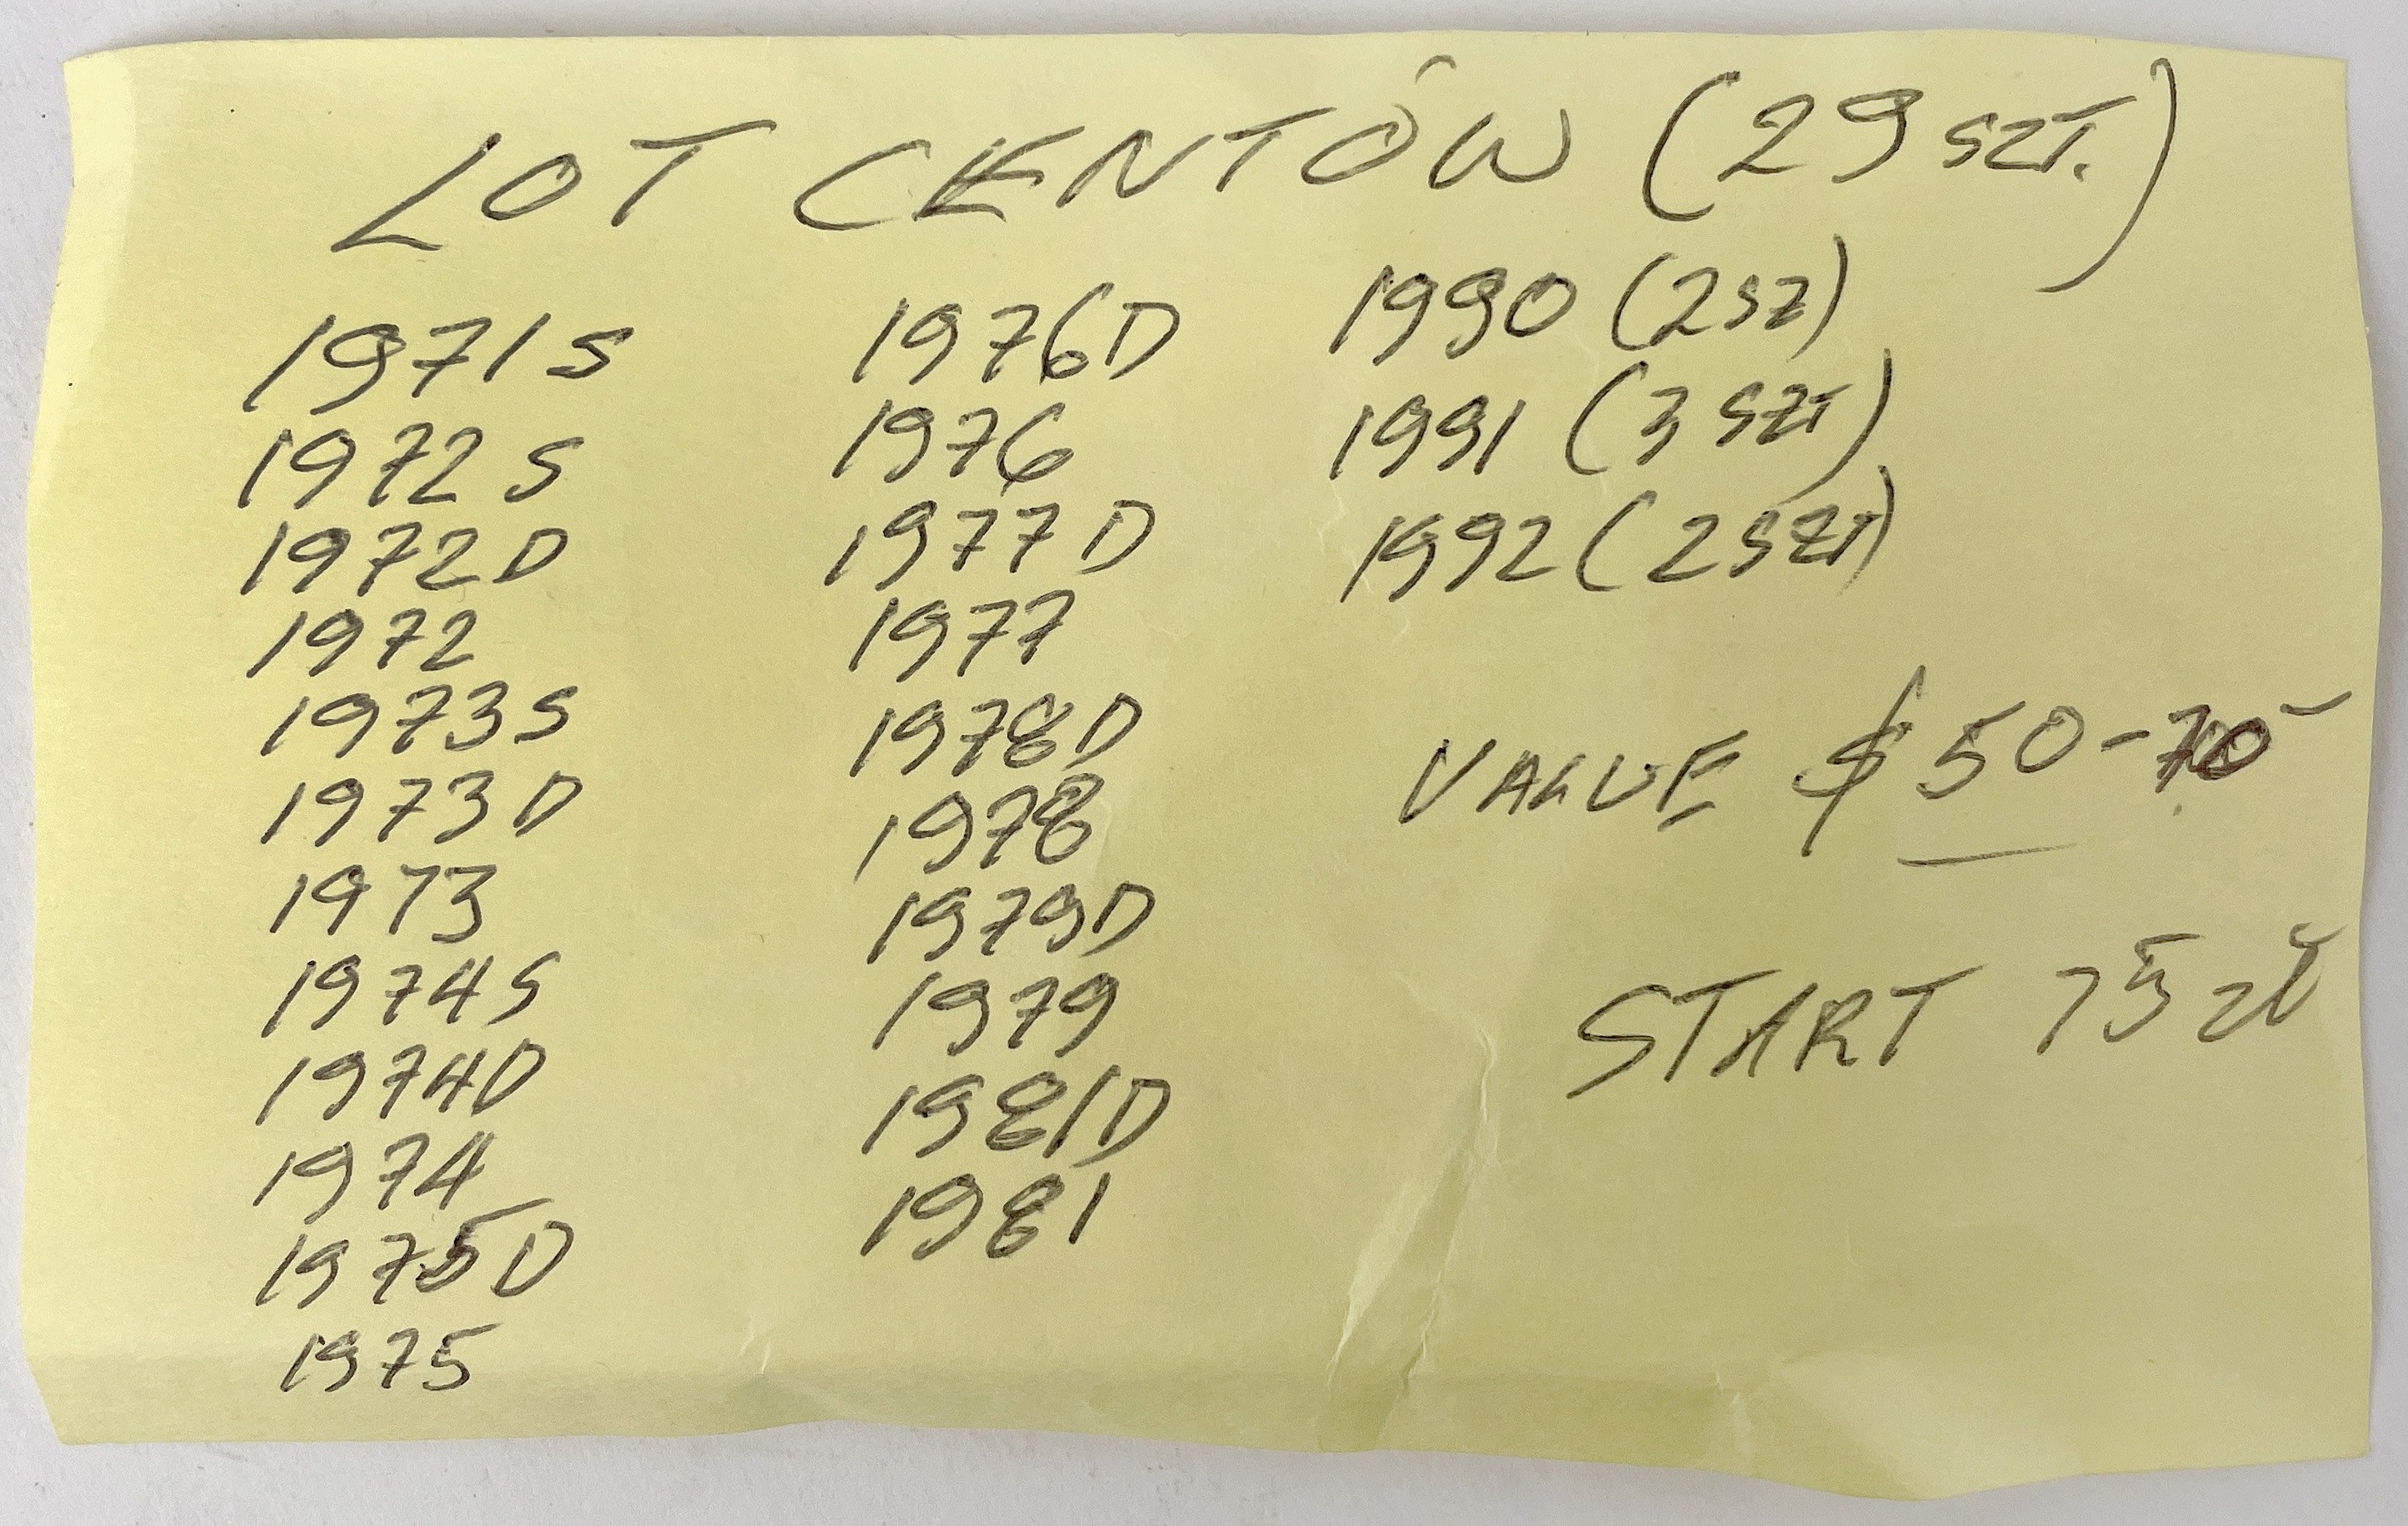 LOT CENTÓW (29 SZT.)
1971 S
1972 S
1972 D
1972
1973 S
1973 D
1973
1974 S
1974 D
1974
1975 D
1975
1976 D
1976
1977 D
1977
1978 D
1978
1979 D
1979
1981 D
1981
1990 (2 SZ)
1991 (3 SZT)
1992 (2 SZT)
VALUE $ 50-70
START 75 ZŁ